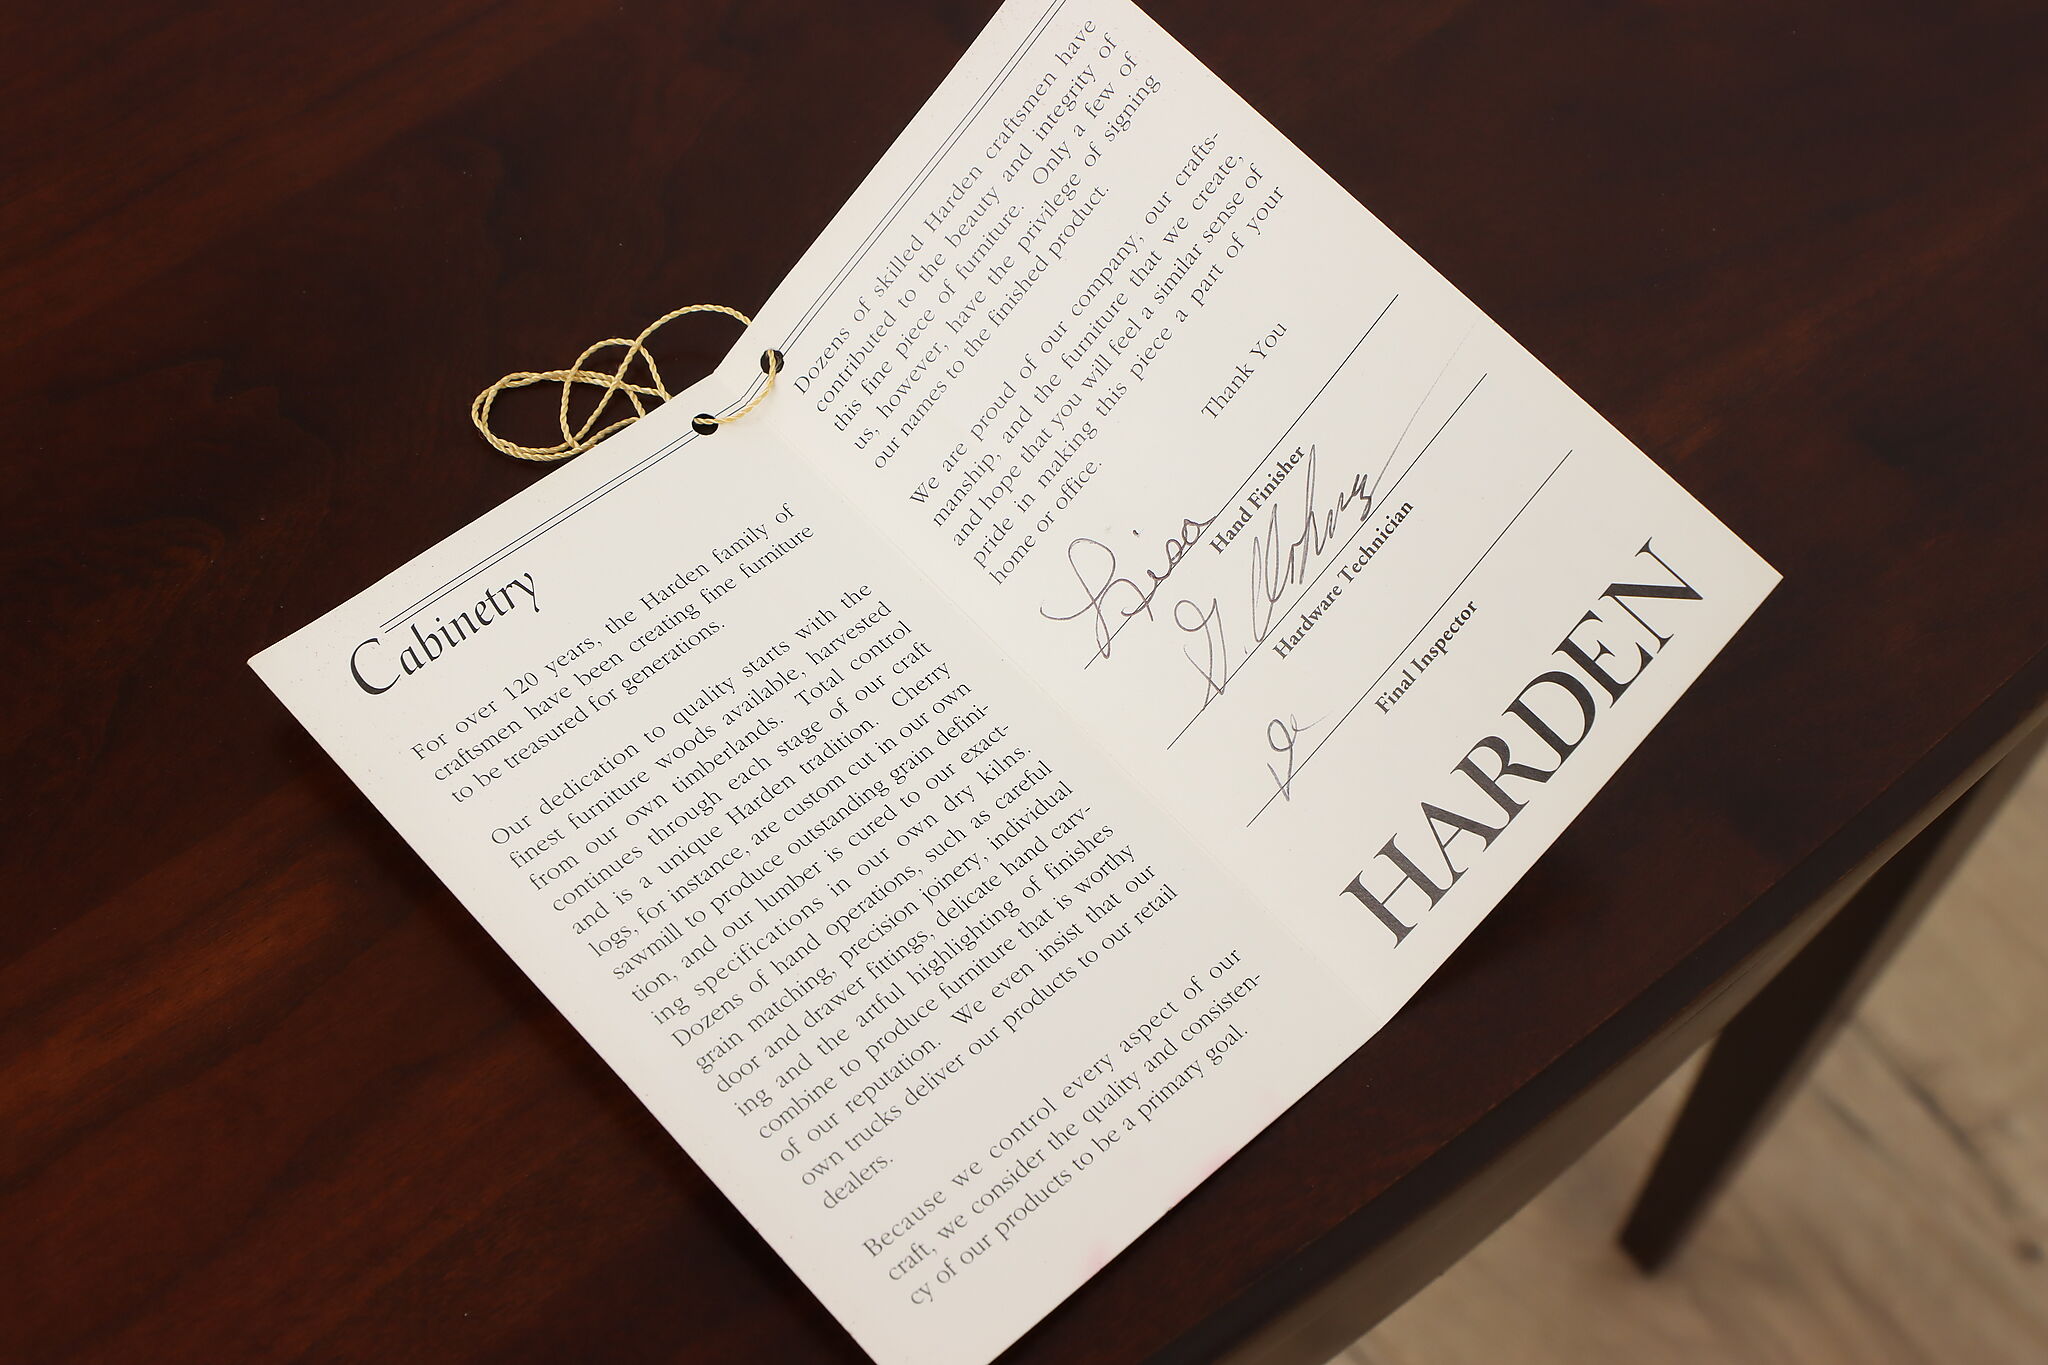 Cabinetry
For over 120 years, the Harden family of
craftsmen have been creating fine furniture
to be treasured for generations.
Our dedication to quality starts with the
finest furniture woods available, harvested
from our own timberlands. Total control
continues through each stage of our craft
and is a unique Harden tradition. Cherry
logs, for instance, are custom cut in our own
sawmill to produce outstanding grain defini-
tion, and our lumber is cured to our exact-
ing specifications in our own dry kilns.
Dozens of hand operations, such as careful
grain matching, precision joinery, individual
door and drawer fittings, delicate hand carv-
ing and the artful highlighting of finishes
combine to produce furniture that is worthy
of our reputation. We even insist that our
own trucks deliver our products to our retail
dealers.
Because we control every aspect of our
craft, we consider the quality and consisten-
cy of our products to be a primary goal.
Dozens of skilled Harden craftsmen have
contributed to the beauty and integrity of
this fine piece of furniture. Only a few of
us, however, have the privilege of signing
our names to the finished product.
We are proud of our company, our crafts-
manship, and the furniture that we create,
and hope that you will feel a similar sense of
pride in making this piece a part of your
home or office.
Thank You
Lisa
Hand Finisher
G.
Hardware Technician
Final Inspector
HARDEN